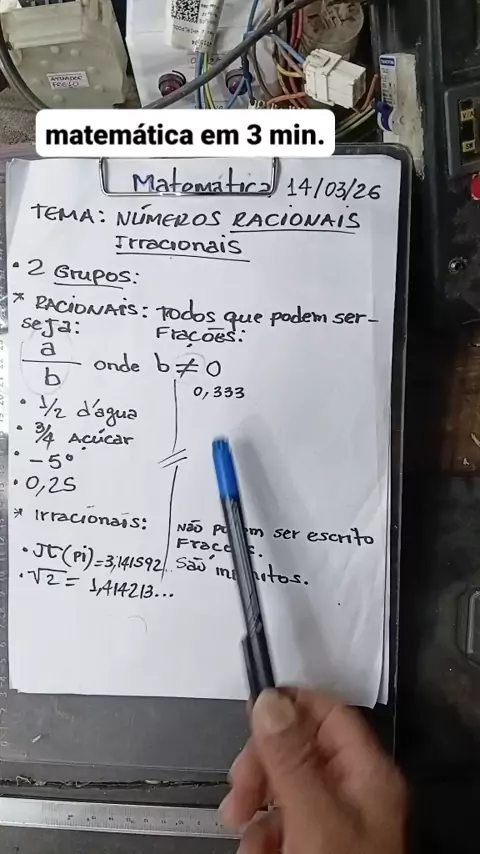 ATUADOR
FREIO
matemática em 3 min.
Matemática 14/03/26
TEMA: NÚMEROS RACIONAIS
Irracionais
• 2 Grupos:
* RACIONAIS: Todos que podem ser-
seja: Frações:
a
b
onde b ≠ 0
0,333
• 1/2 d'água
• 3/4 Açúcar
• -5°
• 0,25
* Irracionais: Não ser escrito
São
• π (Pi) = 3,141592..
• √2 = 1,414213...